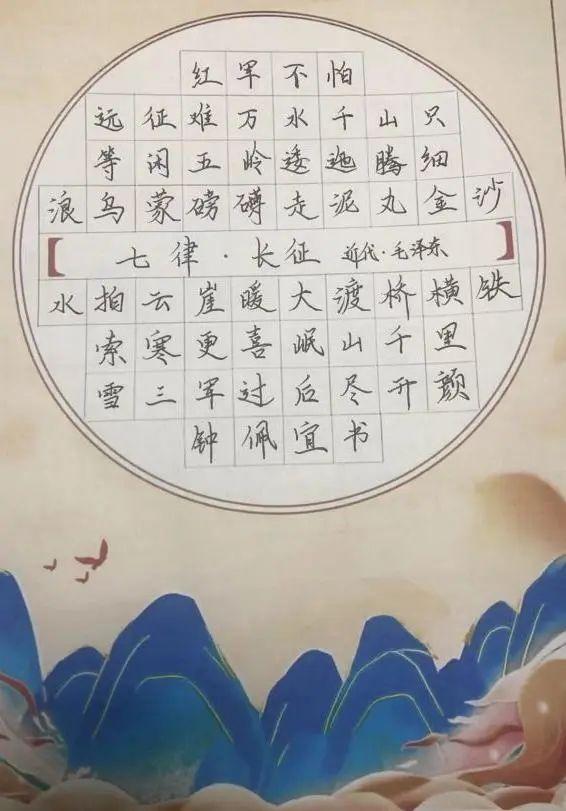 红军不怕
远征难万水千山只
等闲五岭逶迤腾细
浪乌蒙磅礴走泥丸金沙
【七律·长征 近代·毛泽东】
水拍云崖暖大渡桥横铁
索寒更喜岷山千里
雪三军过后尽开颜
钟佩宜书